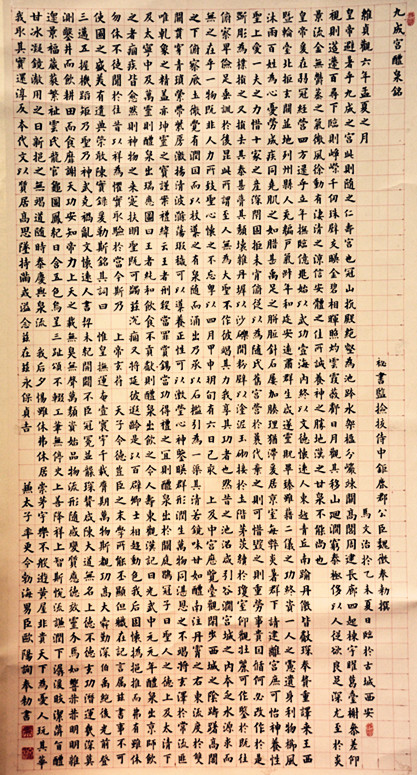 九成宮醴泉銘
秘書監檢校侍中鉅鹿郡公臣魏徵奉勅撰
馬文治於乙未夏日臨於古城西安
維貞觀六年孟夏之月
皇帝避暑乎九成之宮此則隨之仁壽宮也冠山抗殿絕壑為池跨水架楹分巖竦闕高閣周建長廊四起棟宇膠葛臺榭參差仰
視則迢遰百尋下臨則崢嶸千仞珠壁交映金碧相暉照灼雲霞蔽虧日月觀其移山迴澗窮泰極侈以人從欲良足深尤至於炎
景流金無鬱蒸之氣微風徐動有淒清之涼信安體之佳所誠養神之勝地漢之甘泉不能尚也
皇帝爰在弱冠經營四方逮乎立年撫臨億兆始以武功壹海內終以文德懷遠人東越青丘南踰丹徼皆獻琛奉贄重譯來王西
暨輪臺北拒玄闕並地列州縣人充編戶氣淑年和迩安遠肅群生咸遂靈貺畢臻雖藉二儀之功終資一人之慮遺身利物櫛風
沐雨百姓為心憂勞成疾同堯肌之如腊甚禹足之胼胝針石屢加腠理猶滯爰居京室每弊炎暑群下請建離宮庶可怡神養性
聖上愛一夫之力惜十家之產深閉固拒未肯俯從以為隨氏舊宮營於曩代棄之則可惜毀之則重勞事貴因循何必改作於是
斲彫為樸損之又損去其泰甚葺其頹壞雜丹墀以沙礫間粉壁以塗泥玉砌接於土階茅茨續於瓊室仰觀壯麗可作鑒於既往
俯察卑儉足垂訓於後昆此所謂至人無為大聖不作彼竭其力我享其功者也然昔之池沼咸引谷澗宮城之內本乏水源求而
無之在乎一物既非人力所致聖心懷之不忘粵以四月甲申朔旬有六日己亥上及中宮歷覽臺觀閑步西城之陰躊躇高閣
之下俯察厥土微覺有潤因而以杖導之有泉隨而涌出乃承以石檻引為一渠其清若鏡味甘如醴南注丹霄之右東流度於雙
闕貫穿青瑣縈帶紫房激揚清波滌蕩瑕穢可以導養正性可以澂瑩心神鑒映群形潤生萬物同湛恩之不竭將玄澤於常流匪
唯乾象之精蓋亦坤靈之寶謹案禮緯云王者刑殺當罪賞錫當功得禮之宜則醴泉出於闕庭鶡冠子曰聖人之德上及太清下
及太寧中及萬靈則醴泉出瑞應圖曰王者純和飲食不貢獻則醴泉出飲之令人壽東觀漢記曰光武中元元年醴泉出京師飲
之者痼疾皆愈然則神物之來寔扶明聖既可蠲茲沉痼又將延彼遐齡是以百辟卿士相趨動色我后固懷撝挹推而弗有雖休
勿休不徒聞於往昔以祥為懼實取驗於當今斯乃 上帝玄符 天子令德豈臣之末學所能丕顯但職在記言屬茲書事不可
使國之盛美有遺典策敢陳實錄爰勒斯銘其詞曰 惟皇撫運奄壹寰宇千載膺期萬物斯睹功高大舜勤深伯禹絕後光前登
三邁五握機蹈矩乃聖乃神武克禍亂文懷遠人書契未紀開闢不臣冠冕並襲琛贄咸陳大道無名上德不德玄功潛運幾深莫
測鑿井而飲耕田而食靡謝天功安知帝力上天之載無臭無聲萬類資始品物流形隨感變質應德效靈介焉如響赫赫明明雜
遝景福葳蕤繁祉雲氏龍官龜圖鳳紀日含五色烏呈三趾頌不輟工筆無停史上善降祥上智斯悅流謙潤下潺湲皎潔蓱旨醴
甘冰凝鏡澈用之日新挹之無竭道隨時泰慶與泉流 我后夕惕雖休弗休居崇茅宇樂不般遊黃屋非貴天下為憂人玩其華
我取其實還淳反本代文以質居高思墜持滿戒溢念茲在茲永保貞吉 兼太子率更令勃海男臣歐陽詢奉勅書